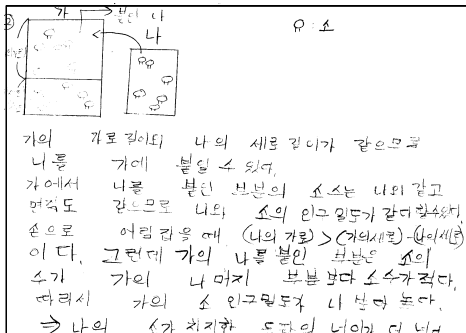 ②
가 → 붙인 나
나
: 소
가의 가로길이와 나의 세로길이가 같으므로
나를 가에 붙일 수 있어.
가에서 나를 붙인 부분의 소수는 나와 같고
면적도 같으므로 나와 소의 인구밀도가 같다
손으로 어림잡을 때 (나의 가로) > (가의세로) - (나의세로)
이다. 그런데 가의 나를 붙인 부분은 소의
수가 가의 나머지 부분보다 소수가 적다.
따라서 가의 소 인구밀도가 나보다 높다.
⇒ 나의 소가 차지한